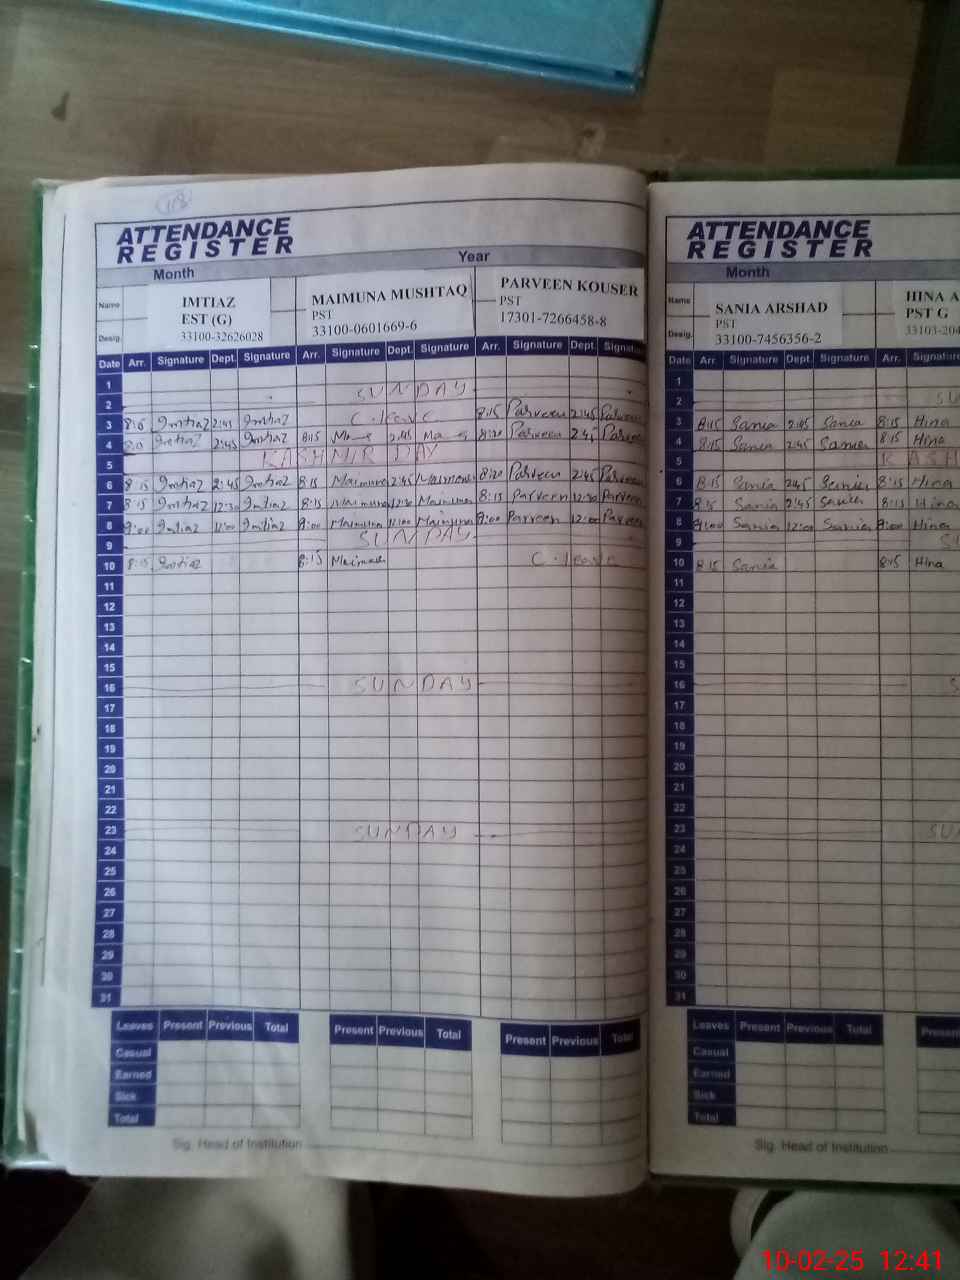 118
ATTENDANCE
REGISTER
Month Year
Name IMTIAZ MAIMUNA MUSHTAQ PARVEEN KOUSER
Desig. EST (G) PST PST
33100-32626028 33100-0601669-6 17301-7266458-8
Date Arr. Signature Dept. Signature Arr. Signature Dept. Signature Arr. Signature Dept. Signature
1
2 SUNDAY
3 8:15 Imtiaz 2:45 Imtiaz C.leave 8:15 Parveen 2:45 Parveen
4 Imtiaz 2:45 Imtiaz 8:15 2:45 8:20 Parveen 2:45 Parveen
5 KASHMIR DAY
6 8:15 Imtiaz 2:45 Imtiaz 8:15 Maimuna 2:45 Maimuna 8:20 Parveen 2:45 Parveen
7 8:15 Imtiaz 12:30 Imtiaz 8:15 Maimuna 12:30 Maimuna 8:15 Parveen 12:30 Parveen
8 9:00 Imtiaz 12:00 Imtiaz 9:00 Maimuna 12:00 Maimuna 9:00 Parveen 12:00 Parveen
9 SUNDAY
10 8:15 Imtiaz 8:15 Maimuna C.leave
11
12
13
14
15
16 SUNDAY
17
18
19
20
21
22
23 SUNDAY
24
25
26
27
28
29
30
31
Leaves Present Previous Total Present Previous Total Present Previous Total
Casual
Earned
Sick
Total
Sig. Head of Institution
ATTENDANCE
REGISTER
Month
Name SANIA ARSHAD HINA A
Desig. PST PST G
33100-7456356-2 33103-204
Date Arr. Signature Dept. Signature Arr. Signature
1
2 SU
3 8:15 Sania 2:45 Sania 8:15 Hina
4 8:15 Sania 2:45 Sania 8:15 Hina
5 KASH
6 8:15 Sania 2:45 Sania 8:15 Hina
7 Sania 2:45 Sania 8:15 Hina
8 9:00 Sania 12:00 Sania 9:00 Hina
9 SU
10 8:15 Sania 8:15 Hina
11
12
13
14
15
16 S
17
18
19
20
21
22
23 SU
24
25
26
27
28
29
30
31
Leaves Present Previous Total Present
Casual
Earned
Sick
Total
Sig. Head of Institution
10-02-25 12:41